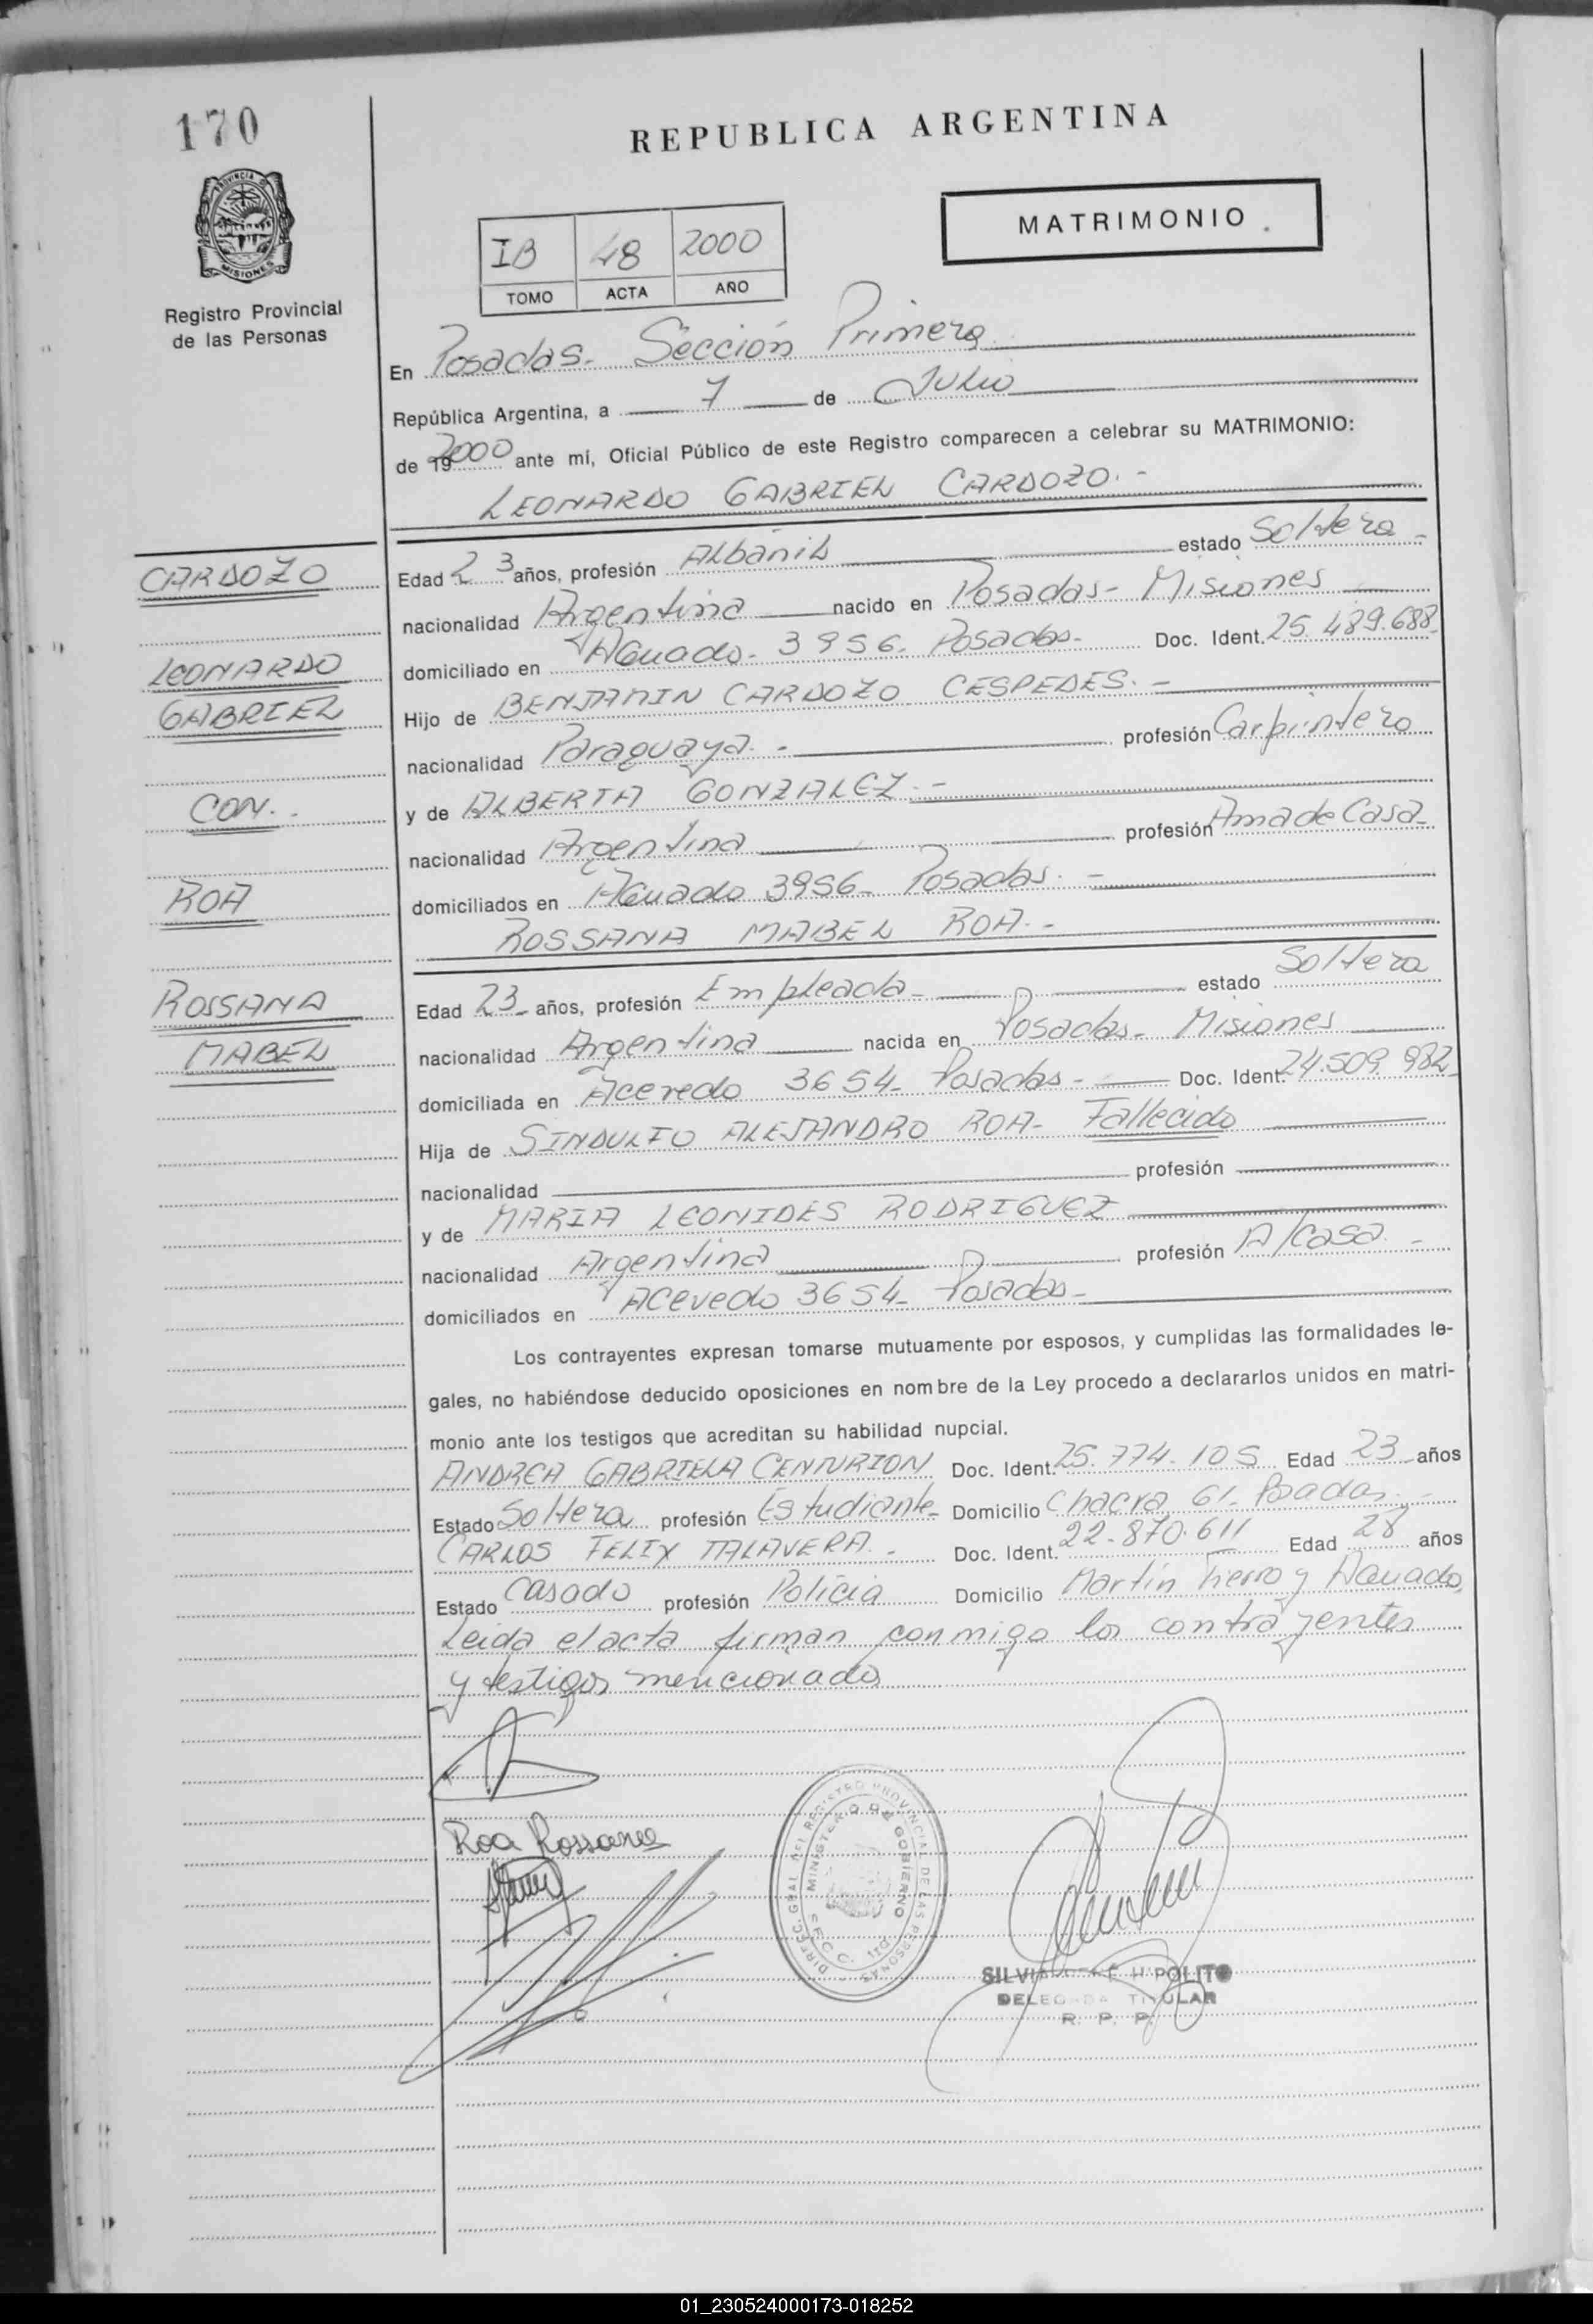 170
REPUBLICA ARGENTINA
PROVINCIA DE
MISIONES
Registro Provincial
de las Personas
MATRIMONIO
IB 48 2000
TOMO ACTA AÑO
En Posadas - Sección Primera
República Argentina, a 7 de Julio
de 19 2000 ante mí, Oficial Público de este Registro comparecen a celebrar su MATRIMONIO:
LEONARDO GABRIEL CARDOZO.-
CARDOZO
LEONARDO
GABRIEL
CON.-
ROA
ROSSANA
MABEL
Edad 23 años, profesión Albañil estado Soltero -
nacionalidad Argentina nacido en Posadas - Misiones
domiciliado en 3956 - Posadas - Doc. Ident. 25.489.688
Hijo de BENJAMIN CARDOZO CESPEDES. -
nacionalidad Paraguaya - profesión Carpintero
y de ALBERTA GONZALEZ. -
nacionalidad Argentina profesión Ama de Casa -
domiciliados en 3956 - Posadas. -
ROSSANA MABEL ROA. -
Edad 23 - años, profesión Empleada - estado Soltera
nacionalidad Argentina nacida en Posadas - Misiones
domiciliada en Acevedo 3654 - Posadas - Doc. Ident. 24.509.982
Hija de SINDULFO ALEJANDRO ROA - Fallecido
nacionalidad profesión
y de MARIA LEONIDES RODRIGUEZ
nacionalidad Argentina profesión A/casa -
domiciliados en Acevedo 3654 - Posadas -
Los contrayentes expresan tomarse mutuamente por esposos, y cumplidas las formalidades le-
gales, no habiéndose deducido oposiciones en nombre de la Ley procedo a declararlos unidos en matri-
monio ante los testigos que acreditan su habilidad nupcial.
ANDREA GABRIELA CENTURION Doc. Ident. 25.774.105 Edad 23 años
Estado Soltera profesión Estudiante - Domicilio Chacra 61 - Posadas -
CARLOS FELIX TALAVERA. - Doc. Ident. 22.870.611 Edad 28 años
Estado Casado profesión Policia Domicilio Martin Fierro y
Leida el acta firman conmigo los contrayentes
y testigos mencionados
Roa Rossana
DIRECC. GRAL DEL REGISTRO PROVINCIAL DE LAS PERSONAS
MINISTERIO DE GOBIERNO
SECC. 1ra.
HIPOLITO
DELEGADA TITULAR
R. P. P.
01_230524000173-018252